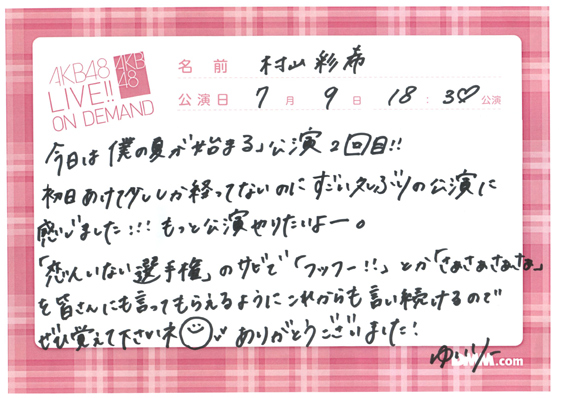 AKB48
LIVE!!
ON DEMAND
AKB
48
名前 村山彩希
公演日 7月9日 18:30公演
今日は僕の夏が始まる」公演2回目!!
初日あけて少ししか経ってないのにすごい久しぶりの公演に
感じました!!! もっと公演やりたいよー。
「恋人いない選手権」のサビで「フッフー!!」とか「さぁさぁさぁさぁ」
を皆さんにも言ってもらえるようにこれからも言い続けるので
ぜひ覚えて下さいネ ありがとうございました!
ゆいりー
.com